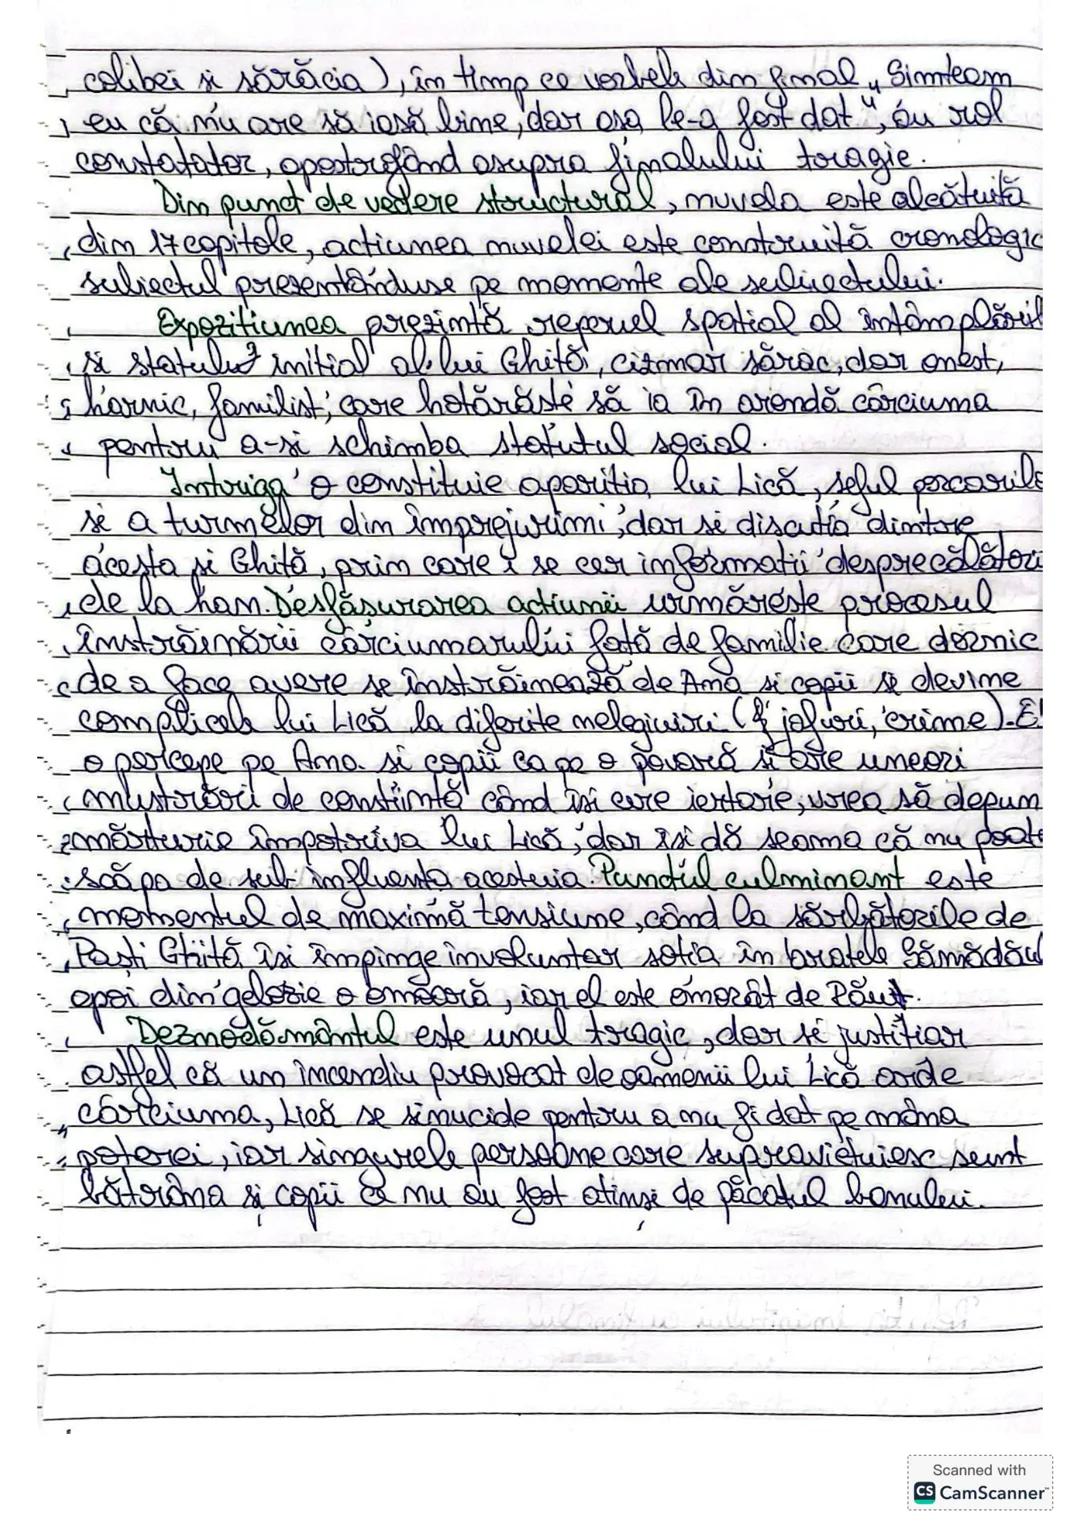 colibei si sărăcia), în timp ce verbele din final „Simteam
eu că nu are să iasă bine, dar asa le-a fost dat", au rol
constatator, apostrofând asupra finalului tragic.
Din punct de vedere structural, nuvela este alcătuită
din 17 capitole, actiunea nuvelei este construită cronologic
subiectul prezentânduse pe momente ale subiectului.
Expozitiunea prezintă reperul spatial al întâmplăril
si statului initial al lui Ghită, cizmar sărac, dar onest,
harnic, familist, care hotărăste să ia în arendă cârciuma
pentru a-si schimba statutul social.
Intriga o constituie aparitia lui Lică, seful porcarilo
si a turmelor din împrejurimi, dar si discutia dintre
acesta si Ghită, prin care i se cer informatii despre călători
de la han. Desfăsurarea actiunii urmăreste procesul
înstrăinării cârciumarului fată de familie care dornic
de a face avere se înstrăinează de Ana si copii si devine
complicele lui Lică la diferite nelegiuiri (jafuri, crime). El
o percepe pe Ana si copii ca pe o povară si are uneori
mustrări de constiintă când isi cere iertare, vrea să depun
mărturie împotriva lui Lică, dar isi dă seama că nu poate
scăpa de sub influenta acestuia. Punctul culminant este
momentul de maximă tensiune, când la sărbătorile de
Pasti Ghită isi împinge involuntar sotia în bratele Sămădăul
apoi din gelozie o omoară, iar el este omorât de Răut.
Deznodământul este unul tragic, dar si justitiar
astfel că un incendiu provocat de oamenii lui Lică arde
cârciuma, Lică se sinucide pentru a nu fi dat pe mâna
poterei, iar singurele persoane care supravietuiesc sunt
bătrâna si copii că nu au fost atinsi de păcatul banului.
Scanned with
CS CamScanner